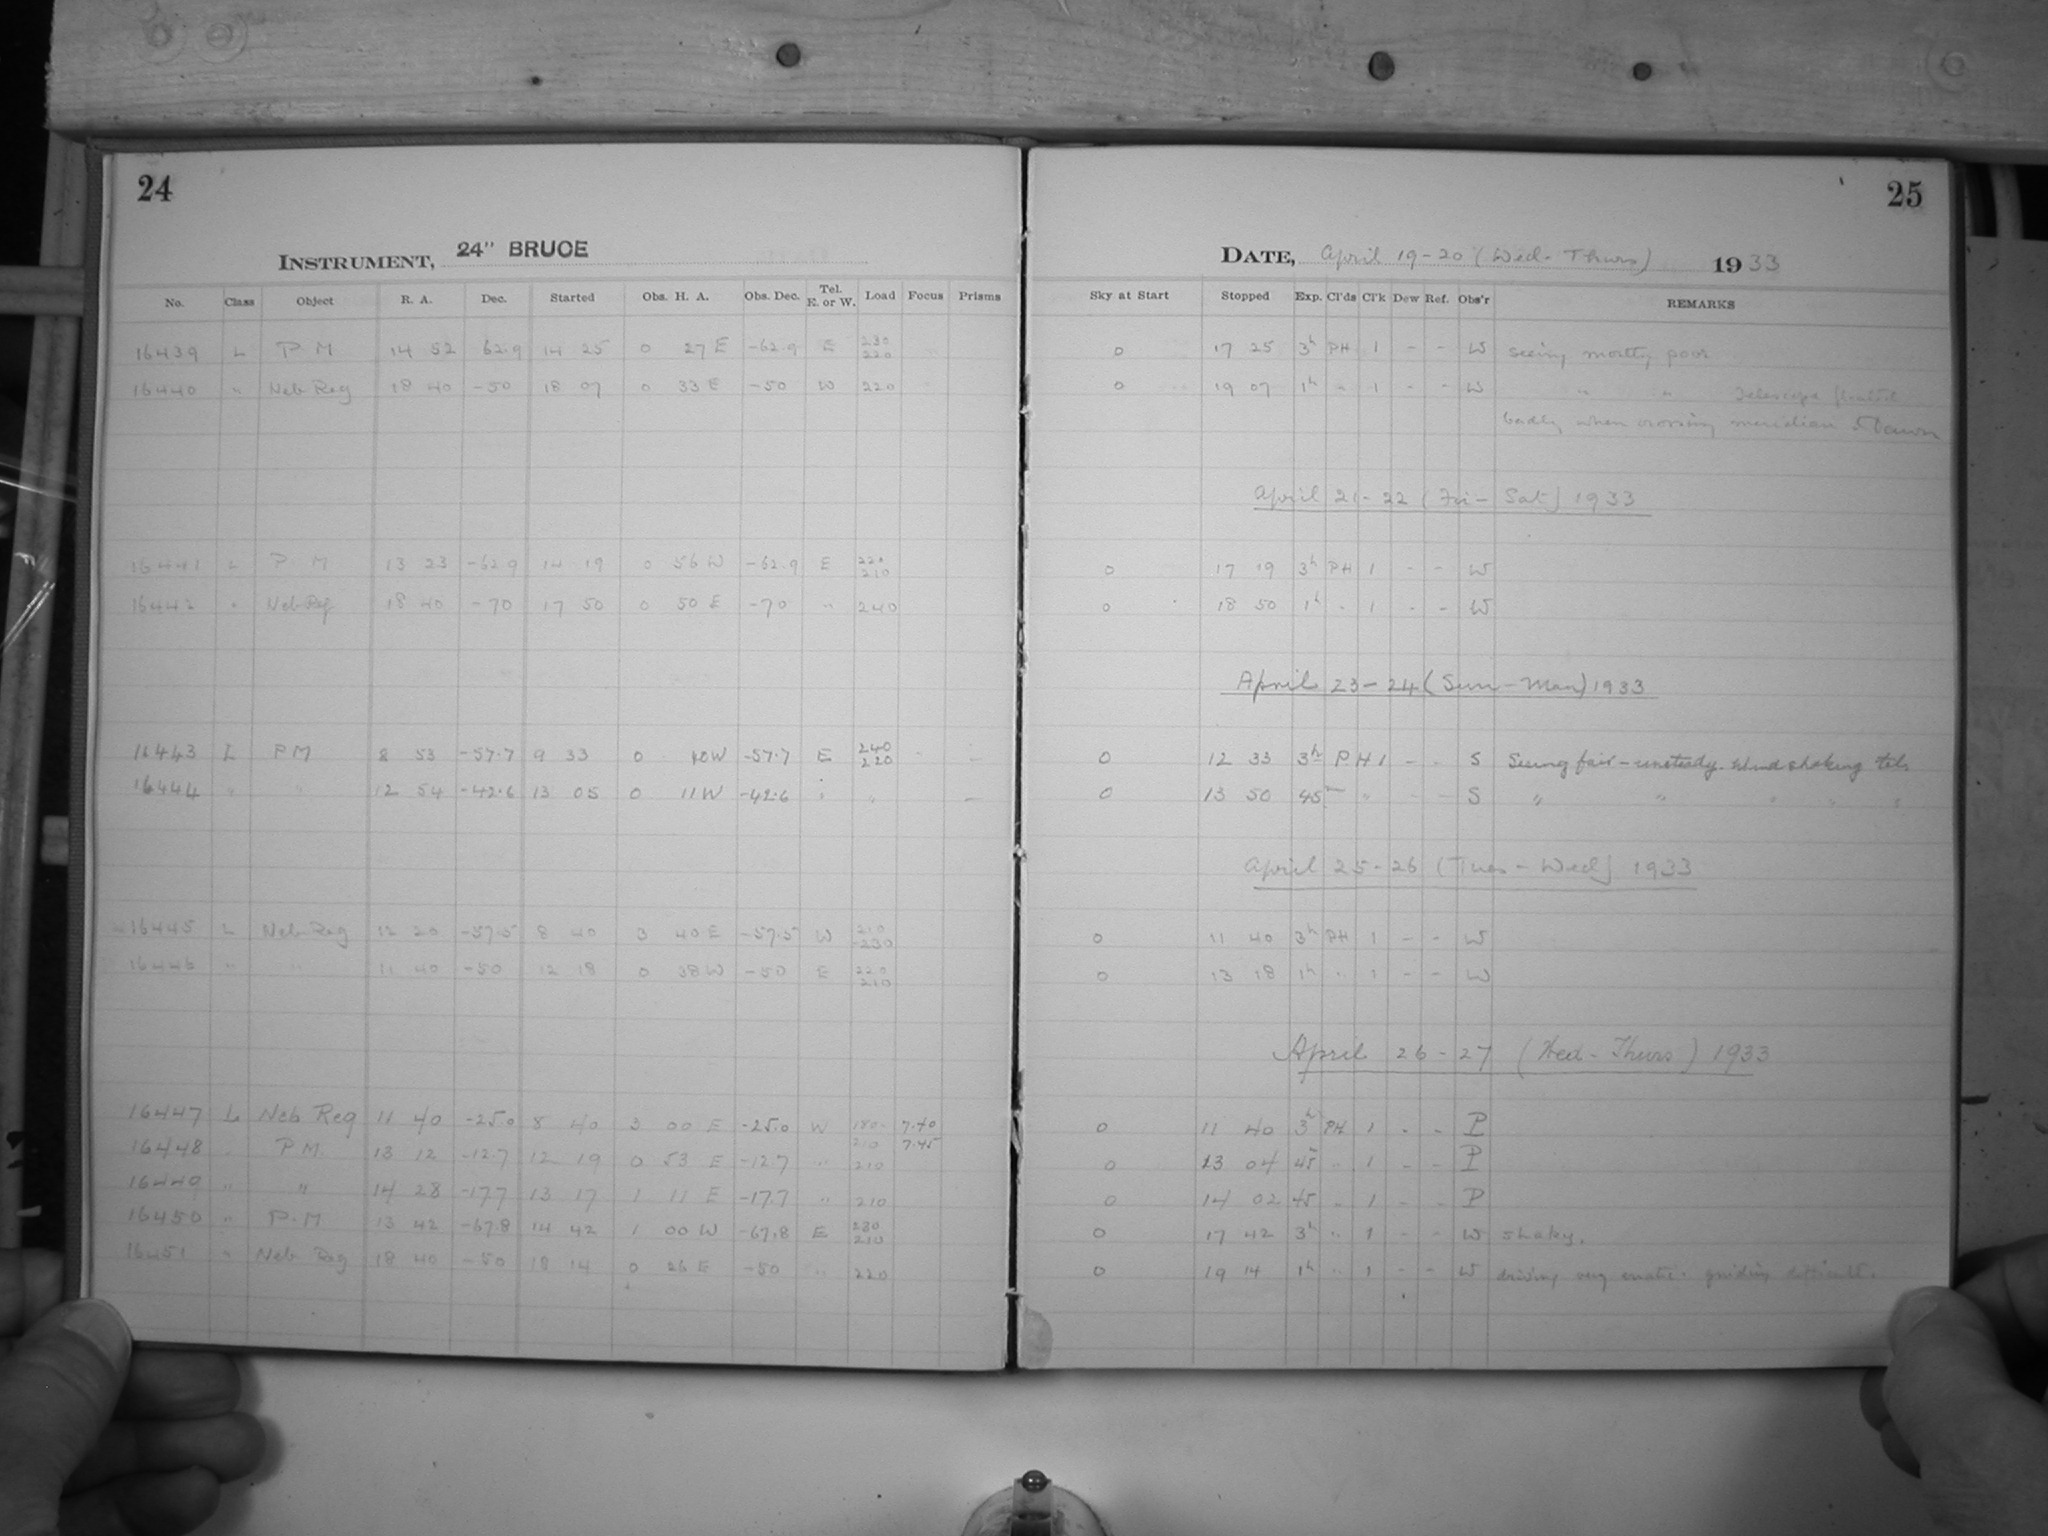 24
INSTRUMENT, 24" BRUCE
No. Class Object R. A. Dec. Started Obs. H. A. Obs. Dec. Tel. E. or W. Load Focus Prisms
16439 L P M 14 52 62.9 14 25 0 27 E -62.9 E 230 220
16440 " Neb Reg 18 40 -50 18 07 0 33 E -50 W 220
16441 L P M 13 23 -62.9 14 19 0 56 W -62.9 E 220 210
16442 " Neb Reg 18 40 -70 17 50 0 50 E -70 " 240
16443 L PM 8 53 -57.7 9 33 0 40 W -57.7 E 240 220
16444 " " 12 54 -42.6 13 05 0 11 W -42.6 " " -
16445 L Neb Reg 12 20 -57.5 8 40 3 40 E -57.5 W 210 -230
16446 " " 11 40 -50 12 18 0 38 W -50 E 220 210
16447 L Neb Reg 11 40 -25.0 8 40 3 00 E -25.0 W 180- 210 7.40 7.45
16448 " P M. 13 12 -12.7 12 19 0 53 E -12.7 " 210
16449 " " 14 28 -17.7 13 17 1 11 E -17.7 " 210
16450 " P.M 13 42 -67.8 14 42 1 00 W -67.8 E 230 210
16451 " Neb Reg 18 40 -50 18 14 0 26 E -50 " 220
25
DATE, April 19-20 (Wed-Thurs) 1933
Sky at Start Stopped Exp. Cl'ds Cl'k Dew Ref. Obs'r REMARKS
0 17 25 3h PH 1 - - W seeing mostly poor
0 19 07 1h " 1 - - W " " Telescope floated
badly when crossing meridian. Dawn
April 21-22 (Fri-Sat) 1933
0 17 19 3h PH 1 - - W
0 18 50 1h " 1 - - W
April 23-24 (Sun-Mon) 1933
0 12 33 3h PH 1 - - S Seeing fair - unsteady. Wind shaking tel.
0 13 50 45m " - - S " " " " "
April 25-26 (Tues-Wed) 1933
0 11 40 3h PH 1 - - W
0 13 18 1h " 1 - - W
April 26-27 (Wed-Thurs) 1933
0 11 40 3h PH 1 - - P
0 13 04 45 " 1 - - P
0 14 02 45 " 1 - - P
0 17 42 3h " 1 - - W shaky.
0 19 14 1h " 1 - - W driving very erratic. guiding difficult.